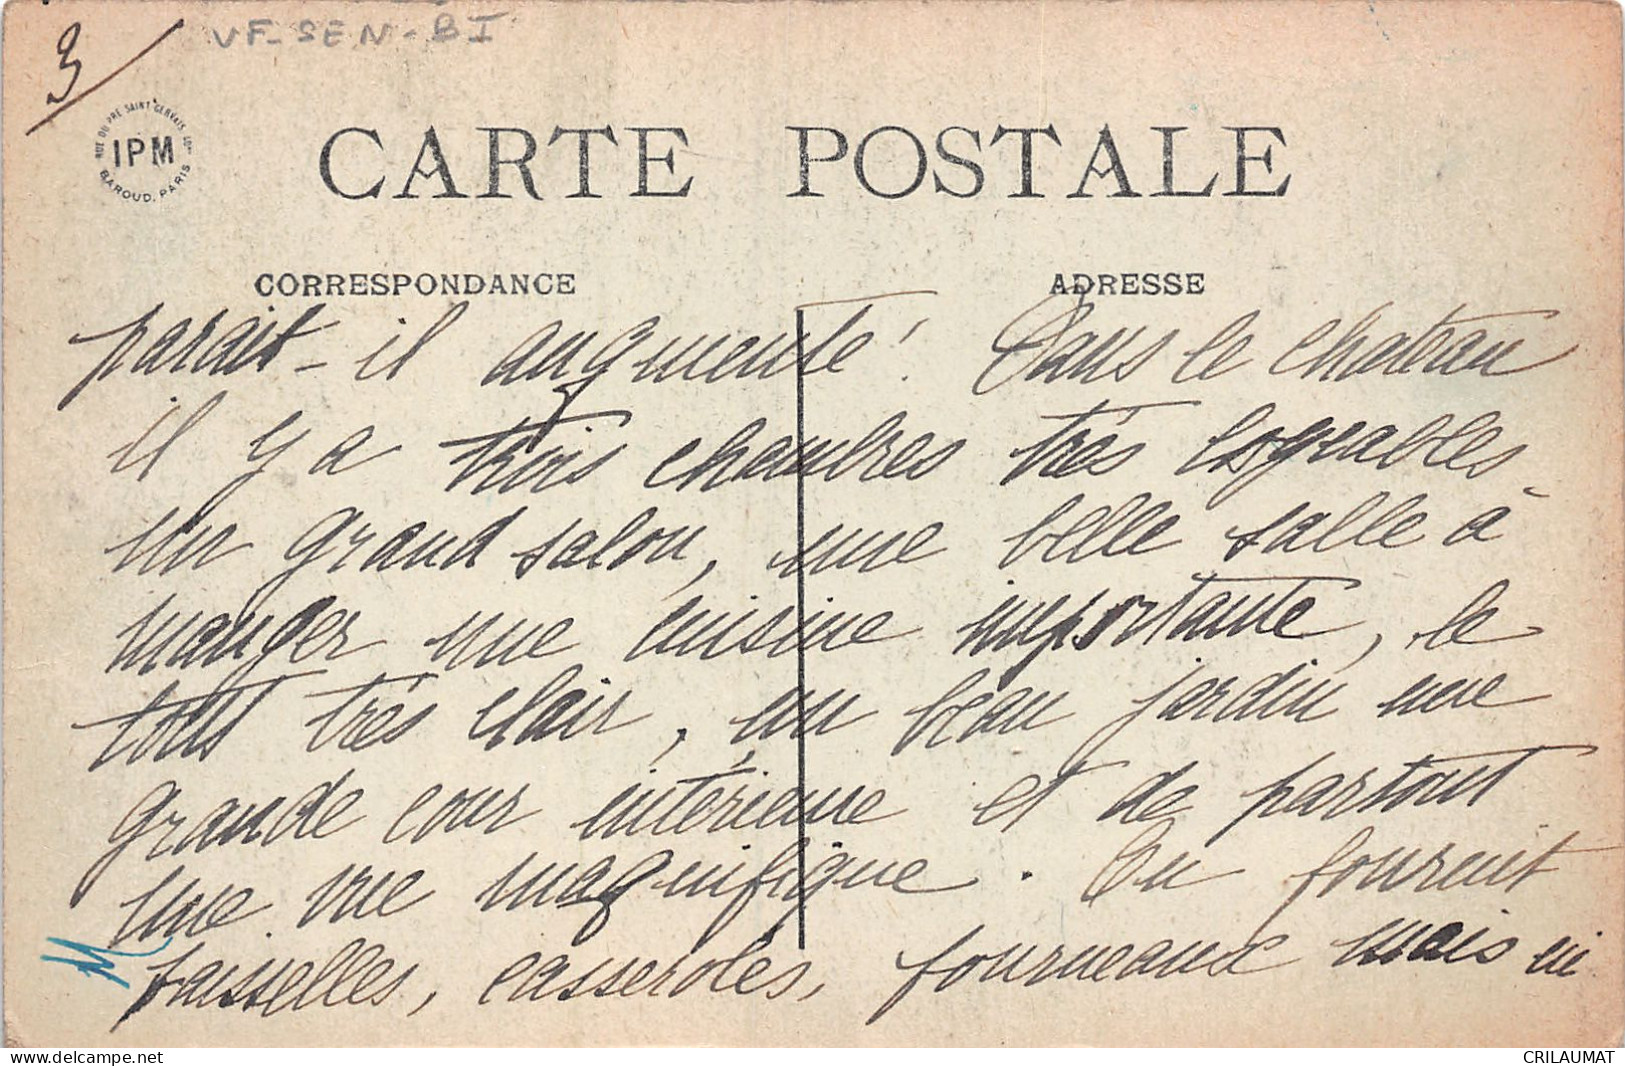 3/
VF-SEN-BI
RUE DU PRÉ SAINT GERVAIS
IPM
BAROUD. PARIS
CARTE POSTALE
CORRESPONDANCE
ADRESSE
parait-il augmenté! Dans le chateau
il y a trois chambres très logeables
un grand salon, une belle salle à
manger une cuisine importante, le
tout très clair, un beau jardin une
grande cour intérieure et de partout
une vue magnifique. On fournit
vaisselles, casseroles, fourneaux mais ni
CRILAUMAT